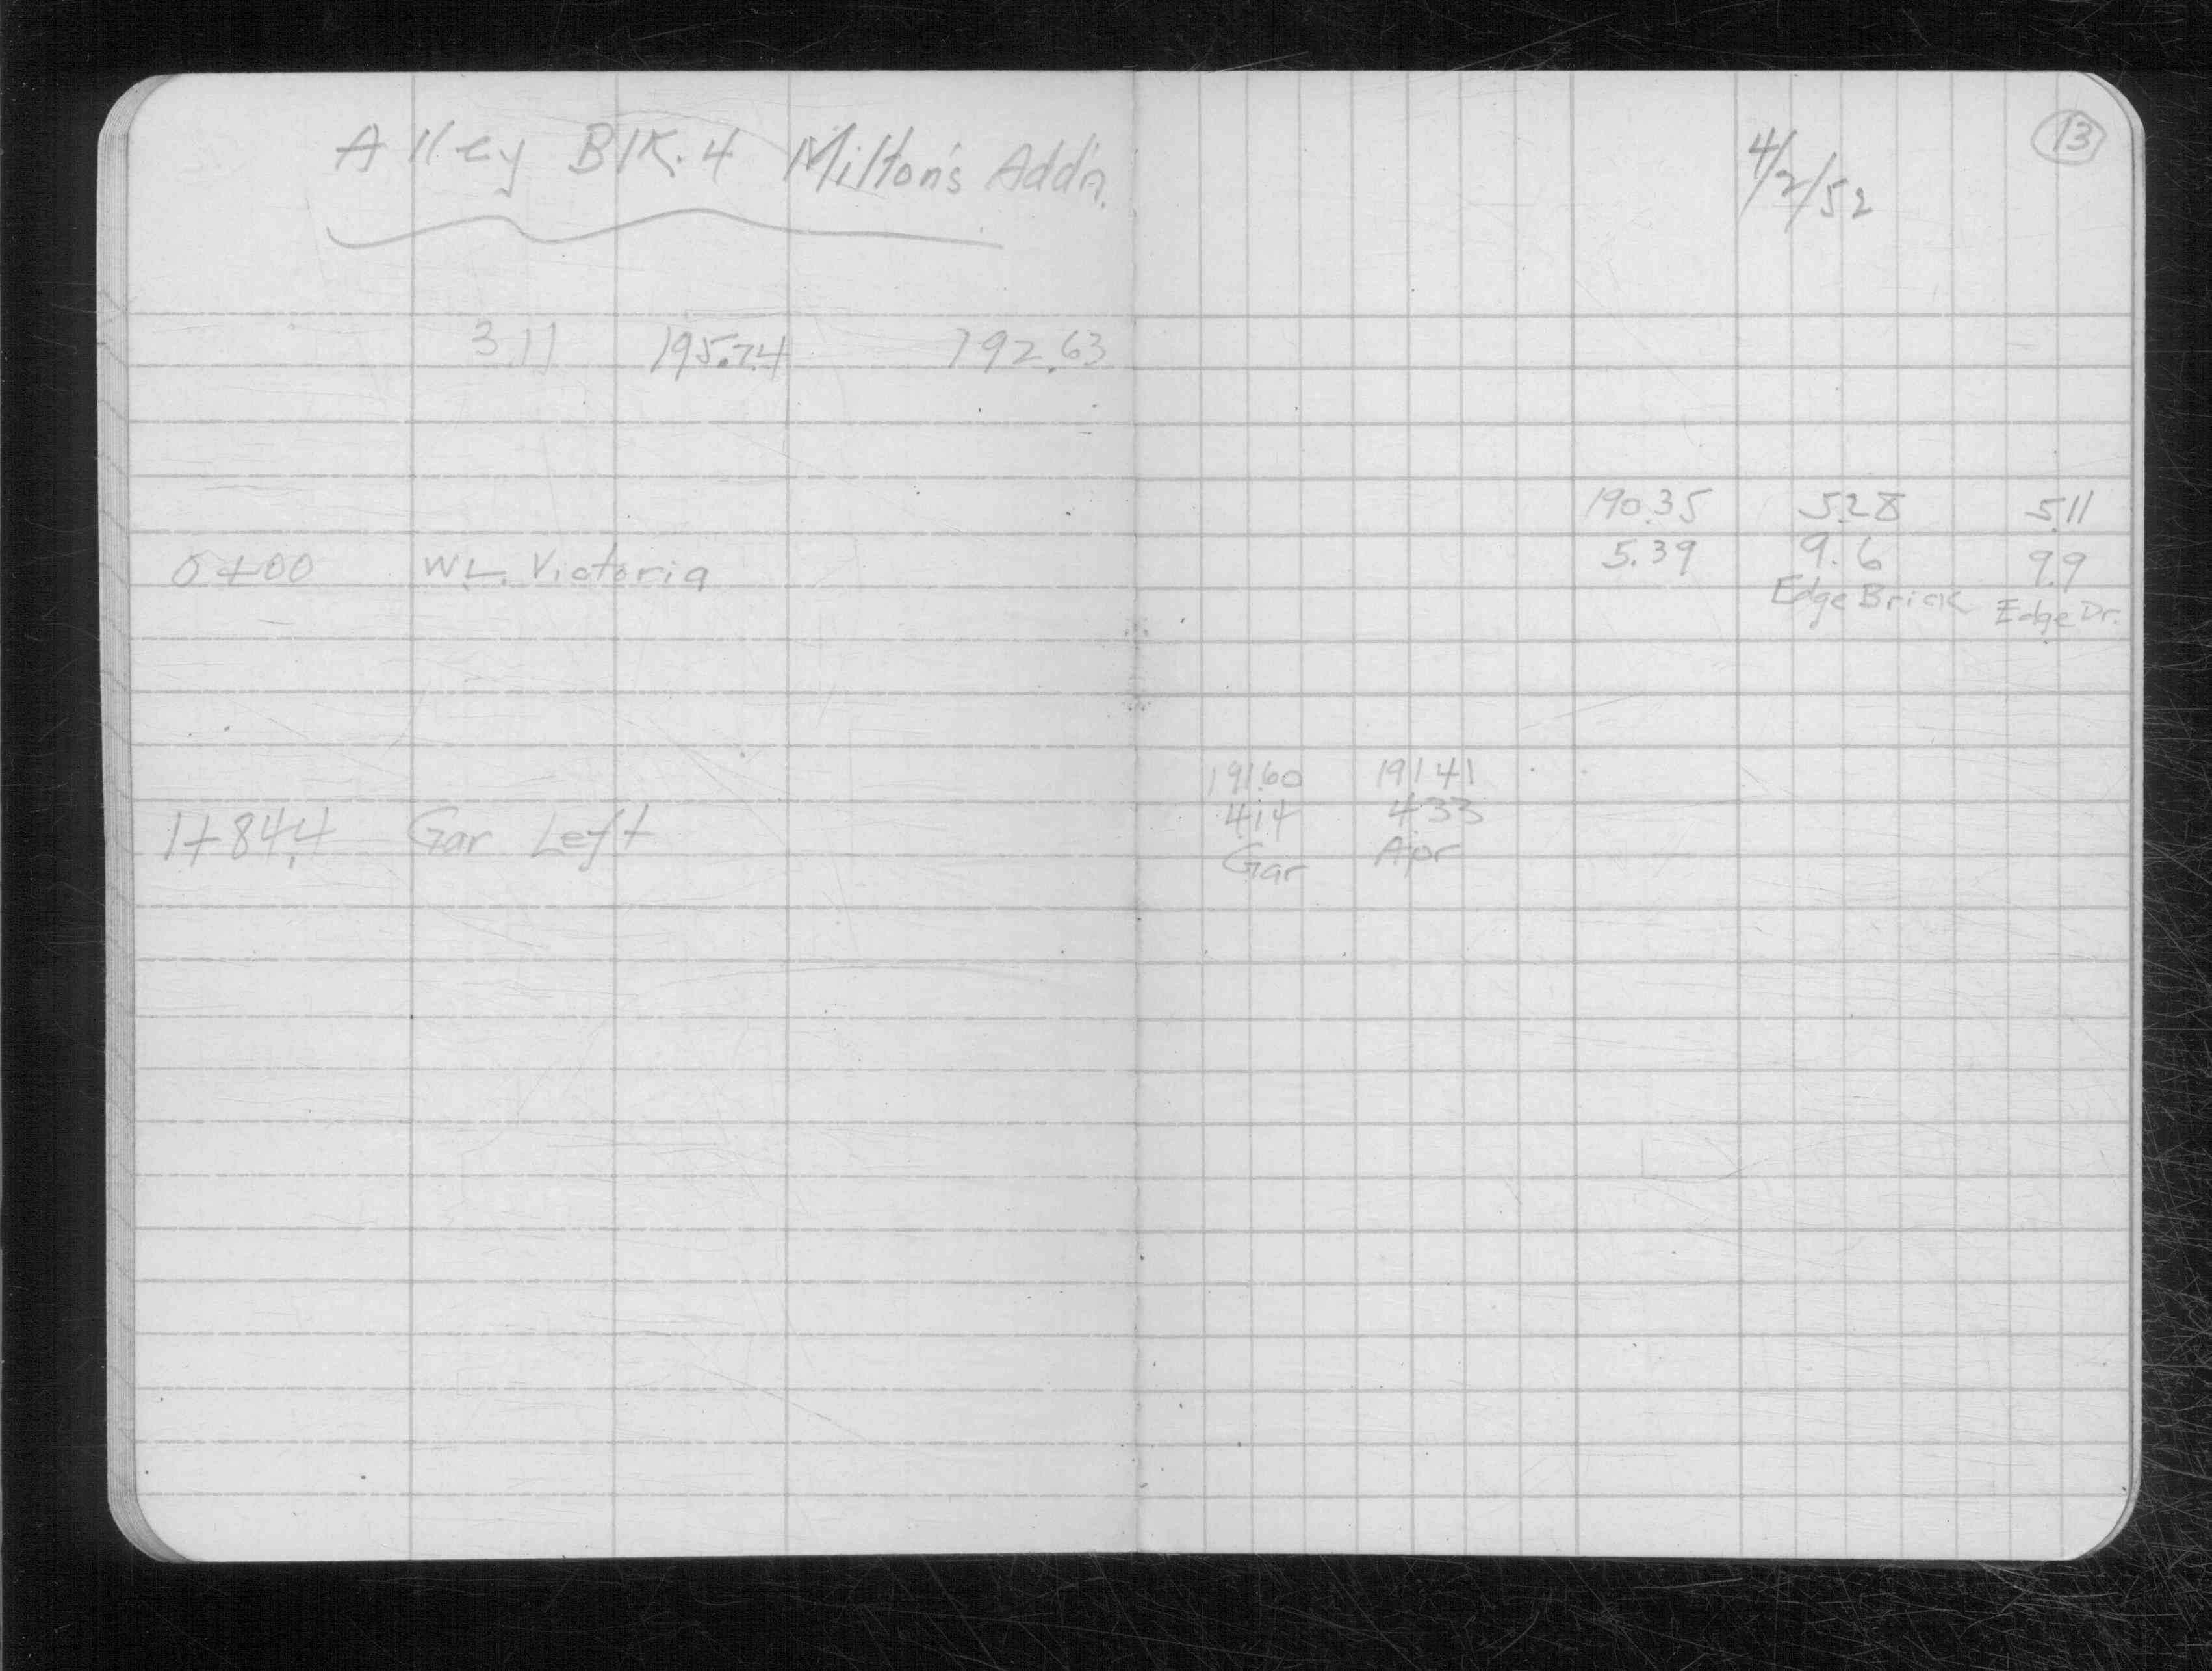 Alley Blk. 4 Milton's Add'n.
4/2/52
13
3.11 195.74 192.63
190.35 5.28 5.11
5.39 9.6 9.9
0+00 WL. Victoria
Edge Brick Edge Dr.
191.60 191.41
4.14 4.33
1+84.4 Gar Left
Gar Apr